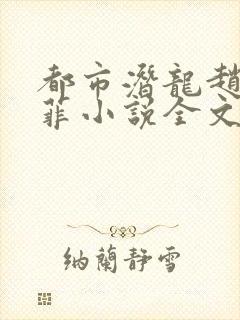 都市潛龍趙
菲小說全文
納蘭靜雪